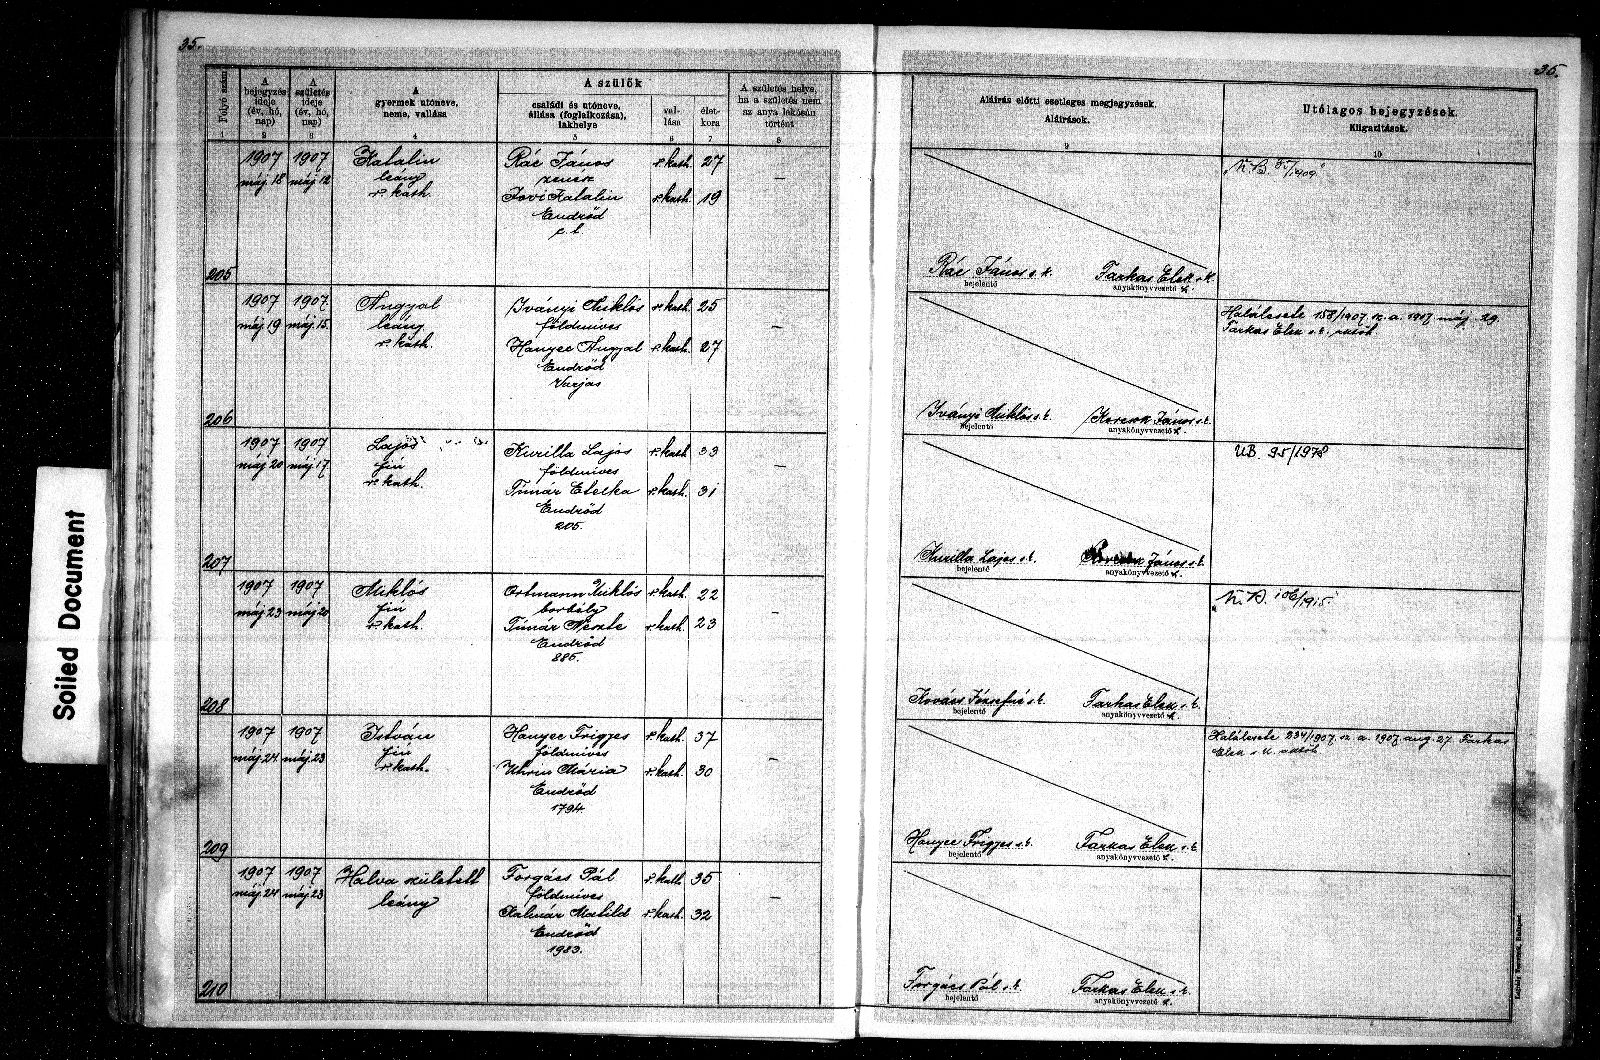 35.
35.
Folyó szám
A bejegyzés ideje (év, hó, nap)
A születés ideje (év, hó, nap)
A gyermek utóneve, neme, vallása
A szülők
családi és utóneve, állása (foglalkozása), lakhelye
vallása
életkora
A születés helye, ha a születés nem az anya lakásán történt
Aláírás előtti esetleges megjegyzések.
Aláírások.
Utólagos bejegyzések.
Kiigazítások.
1 2 3 4 5 6 7 8 9 10
1907 1907 Katalin Rác János r. kath. 27
máj 18 máj 12 leány zenész —
r. kath. Jovi Katalin r. kath. 19
Endrőd
205
Rác János s. k. Farkas Elek s. k.
bejelentő anyakönyvvezető
1907 1907 Angyal Iványi Miklós r. kath. 25
máj 19 máj 15. leány földmives —
r. kath. Hanyec Angyal r. kath. 27
Endrőd
Varjas
206
Halálesete 158/1907. sz. a. 1907 máj. 29
Farkas Elek s. k.
Iványi Miklós s. k. Korcsok János s. k.
bejelentő anyakönyvvezető
1907 1907 Lajos Kurilla Lajos r. kath. 33
máj 20 máj 17. fiú földmives —
r. kath. Timár Etelka r. kath. 31
Endrőd
205.
207
UB 95/1978
Kurilla Lajos s. k. János s. k.
bejelentő anyakönyvvezető
1907 1907 Miklós Ortmann Miklós r. kath. 22
máj 23 máj 20 fiú borbély —
r. kath. Timár r. kath. 23
Endrőd
885.
208
106/1915
Kovács Józsefné s. k. Farkas Elek s. k.
bejelentő anyakönyvvezető
1907 1907 István Hanyec Frigyes r. kath. 37
máj 24 máj 23 fiú földmives —
r. kath. Uhrin Mária r. kath. 30
Endrőd
1794.
209
Halálesete 234/1907. sz. a. 1907 aug. 27 Farkas
Elek s. k.
Hanyec Frigyes s. k. Farkas Elek s. k.
bejelentő anyakönyvvezető
1907 1907 Halva született Forgács Pál r. kath. 35
máj 24 máj 23 leány földmives —
Kalmár Matild r. kath. 32
Endrőd
1983.
210
Forgács Pál s. k. Farkas Elek s. k.
bejelentő anyakönyvvezető
Soiled Document